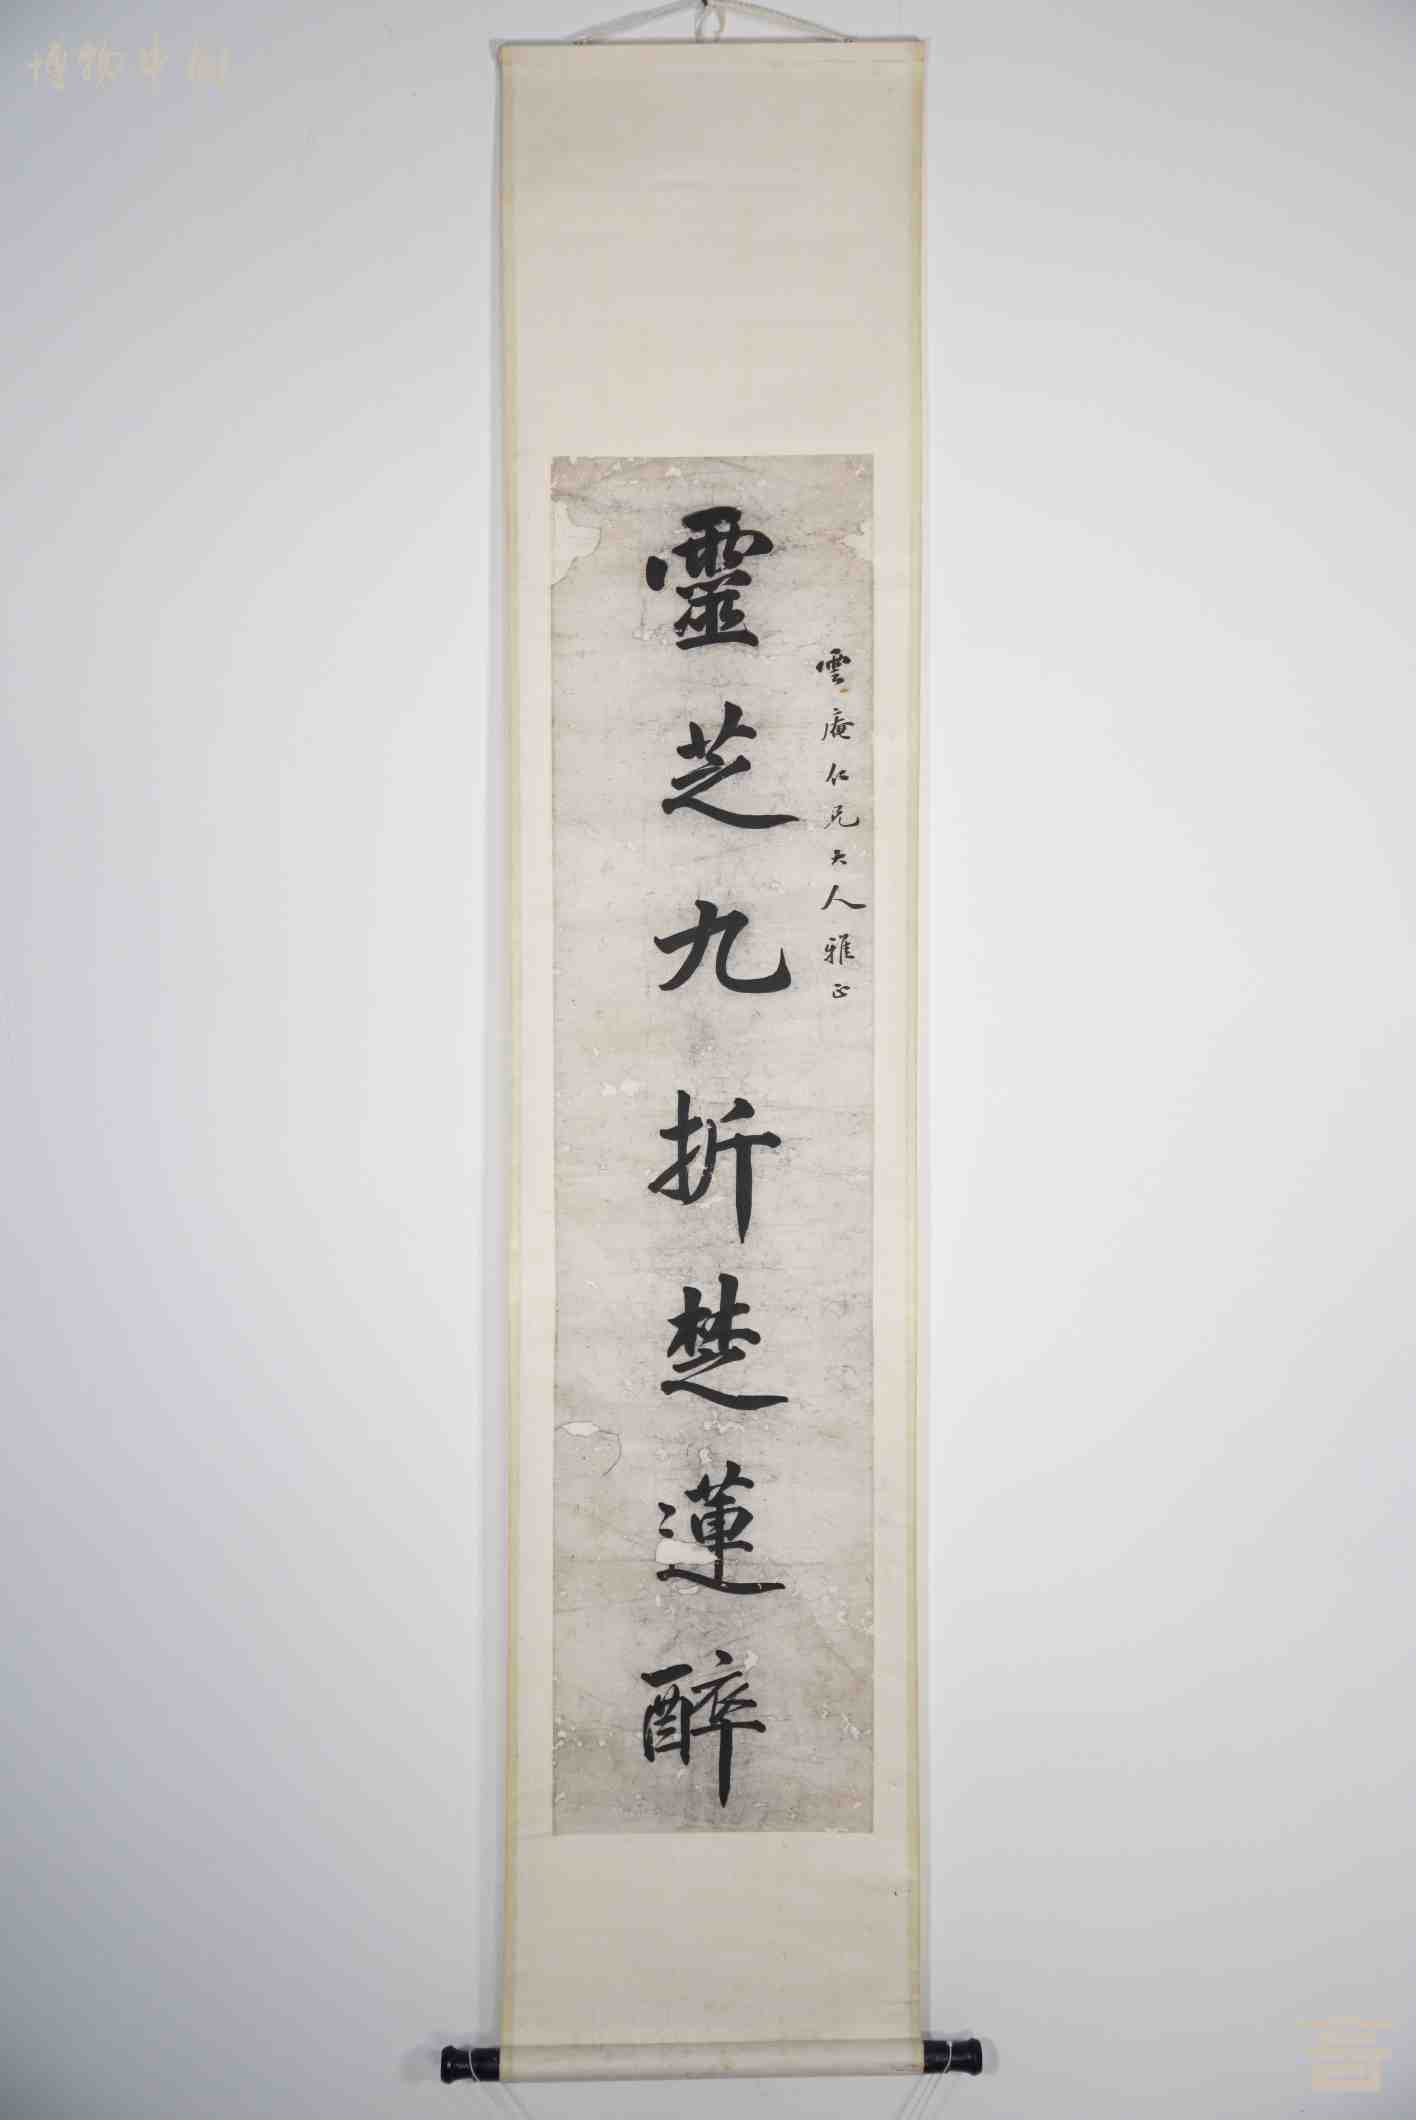 雲庵仁兄大人雅正
靈芝九折楚蓮醉
博物中州